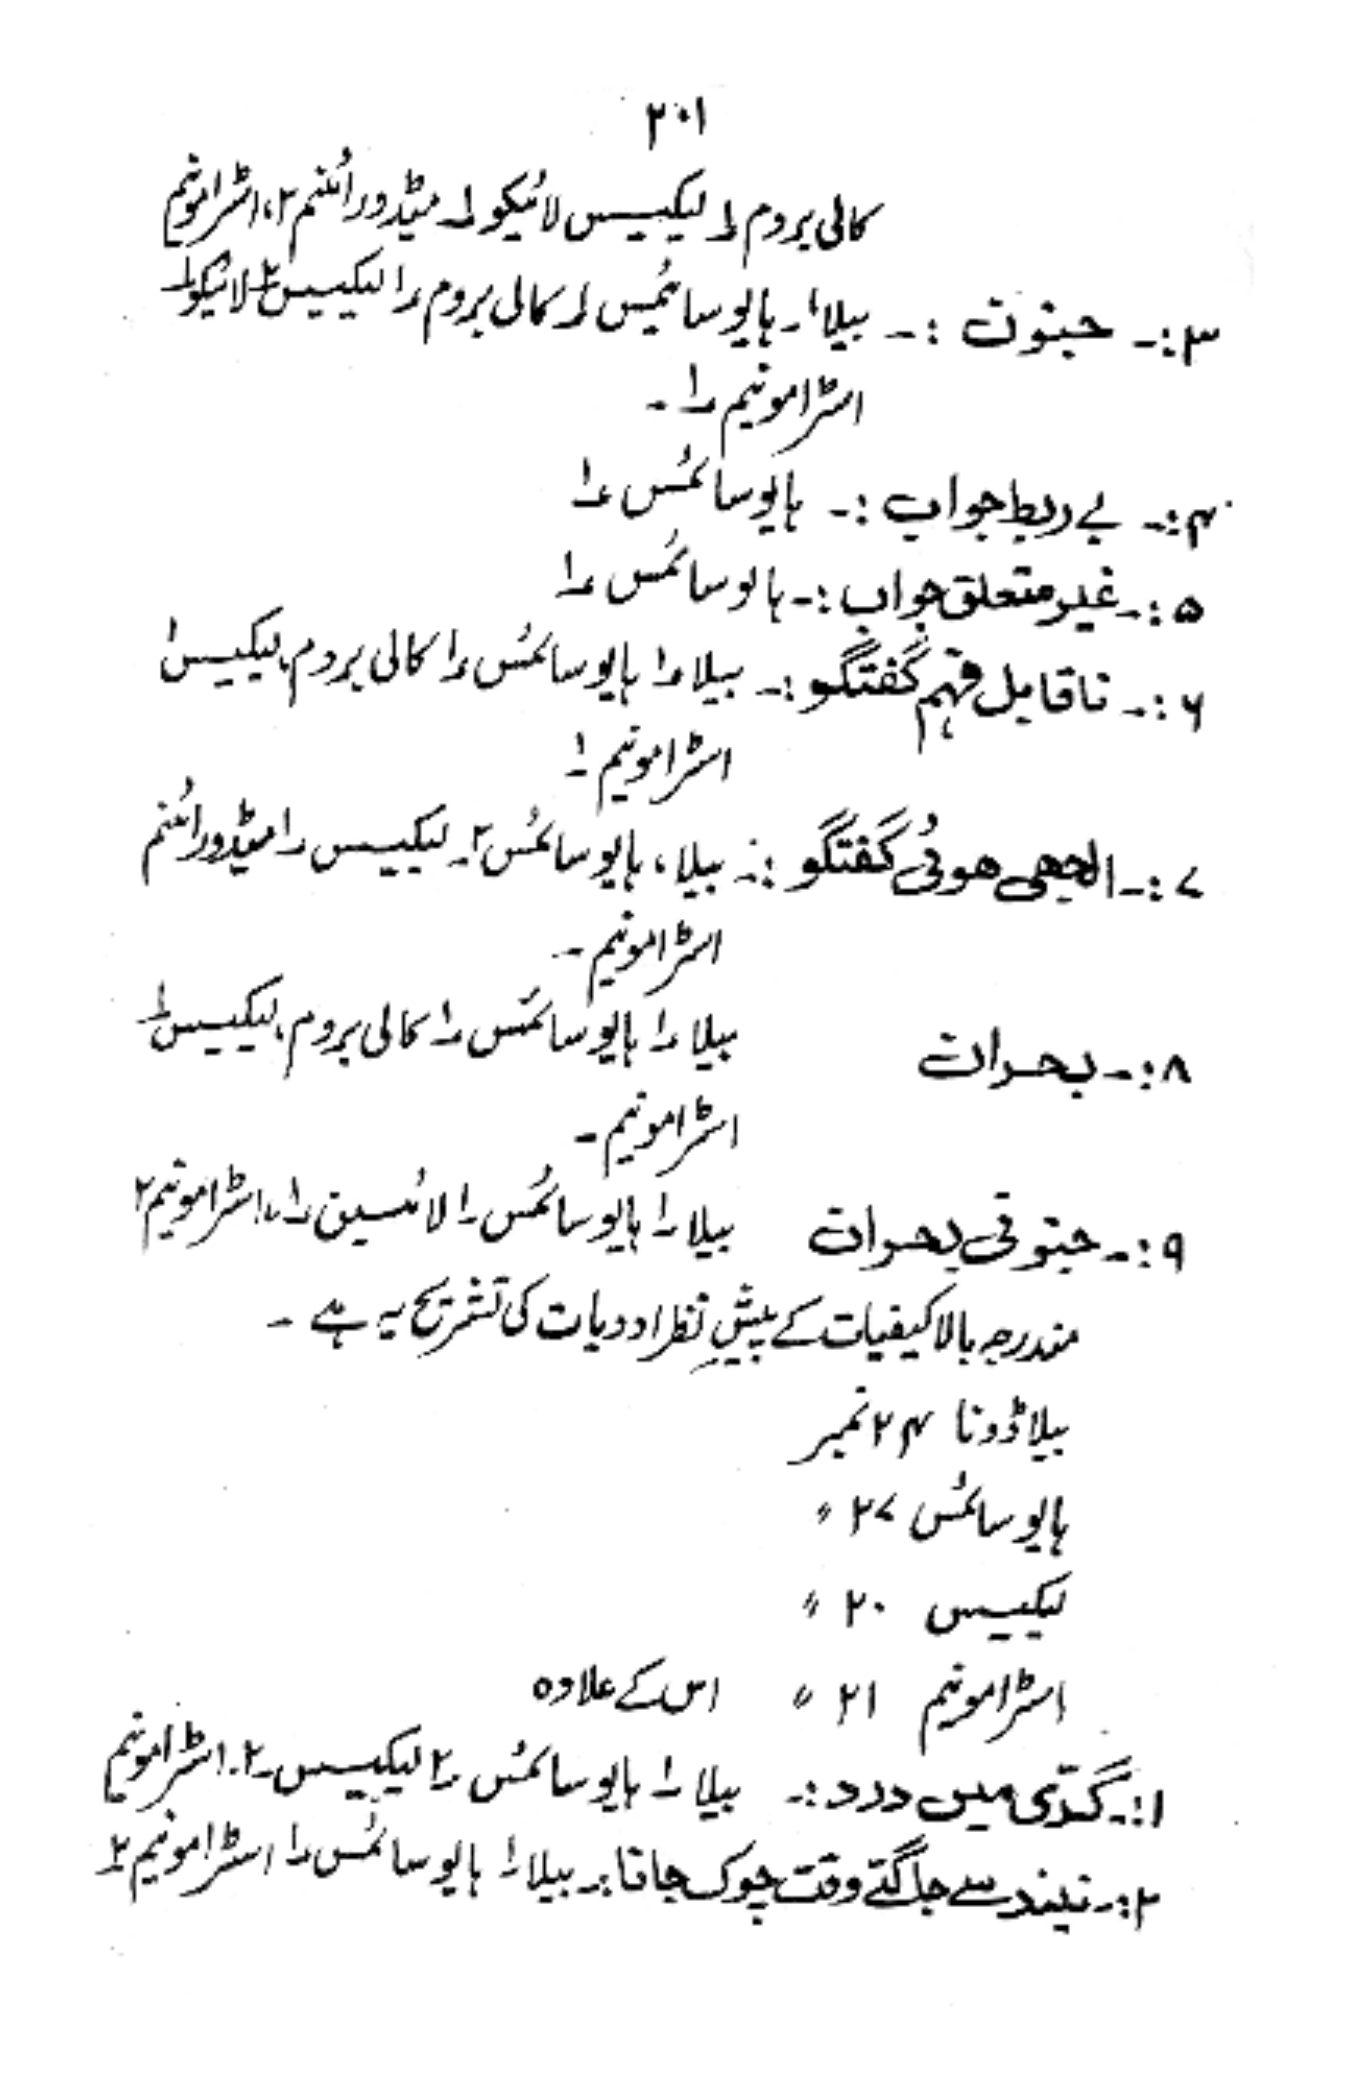 ۲۰۱
کالی بروم ۱ لیکیسس لائیکو ۱ میڈورائنم ۲، اسٹرامونیم
۳:۔ جنون :۔ بیلا ۱۔ ہایوسائمیس ۱ کالی بروم ۱ لیکیسس ۲ لائیکو ۱
اسٹرامونیم ۱۔
۴:۔ بے ربط جواب :۔ ہایوسائمس ۱
۵:۔ غیر متعلق جواب :۔ ہایوسائمس ۱
۶:۔ ناقابل فہم گفتگو :۔ بیلا ۱ ہایوسائمس ۱ کالی بروم، لیکیسس ۱
اسٹرامونیم ۱
۷:۔ الجھی ہوئی گفتگو :۔ بیلا، ہایوسائمس ۲۔ لیکیسس ۱ میڈورائنم
اسٹرامونیم ۔
۸:۔ بحران بیلا ۱ ہایوسائمس ۱ کالی بروم، لیکیسس ۱
اسٹرامونیم ۔
۹:۔ جنونی بحران بیلا ۱ ہایوسائمس ۱ لائسین ۱، اسٹرامونیم ۲
مندرجہ بالا کیفیات کے پیشِ نظر ادویات کی تشریح یہ ہے ۔
بیلاڈونا ۲۴ نمبر
ہایوسائمس ۲۷〃
لیکیسس ۲۰ 〃
اسٹرامونیم ۲۱ 〃 اس کے علاوہ
۱:۔ گدّی میں درد :۔ بیلا ۱ ہایوسائمس ۲ لیکیسس ۲۔ اسٹرامونیم
۲:۔ نیند سے جاگتے وقت چوک جانا :۔ بیلا ۱ ہایوسائمس ۱ اسٹرامونیم ۲